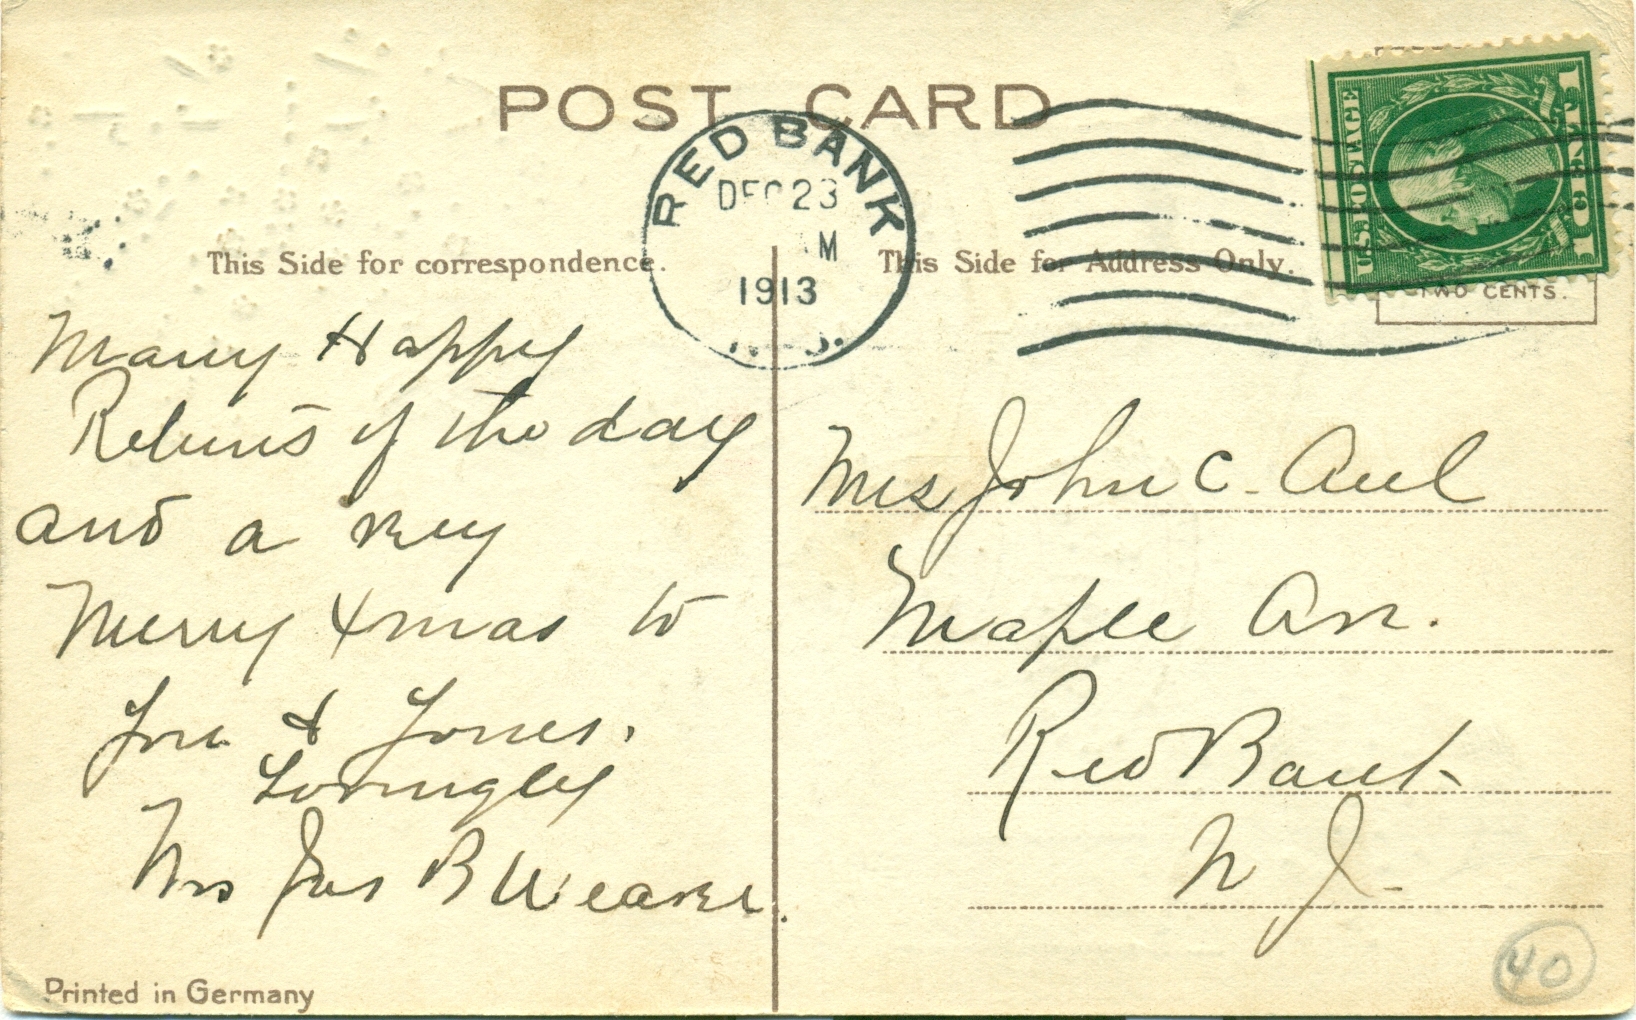 POST CARD
RED BANK
DEC 23
M
1913
This Side for correspondence.
This Side for Address Only.
U.S. POSTAGE
1 CENT 1
TWO CENTS.
Many Happy
Returns of the day
and a very
Merry Xmas to
you & yours.
Lovingly
Mrs Jas B Weaver.
Mrs John C. Aul
Maple Av.
Red Bank
N J.
Printed in Germany
40